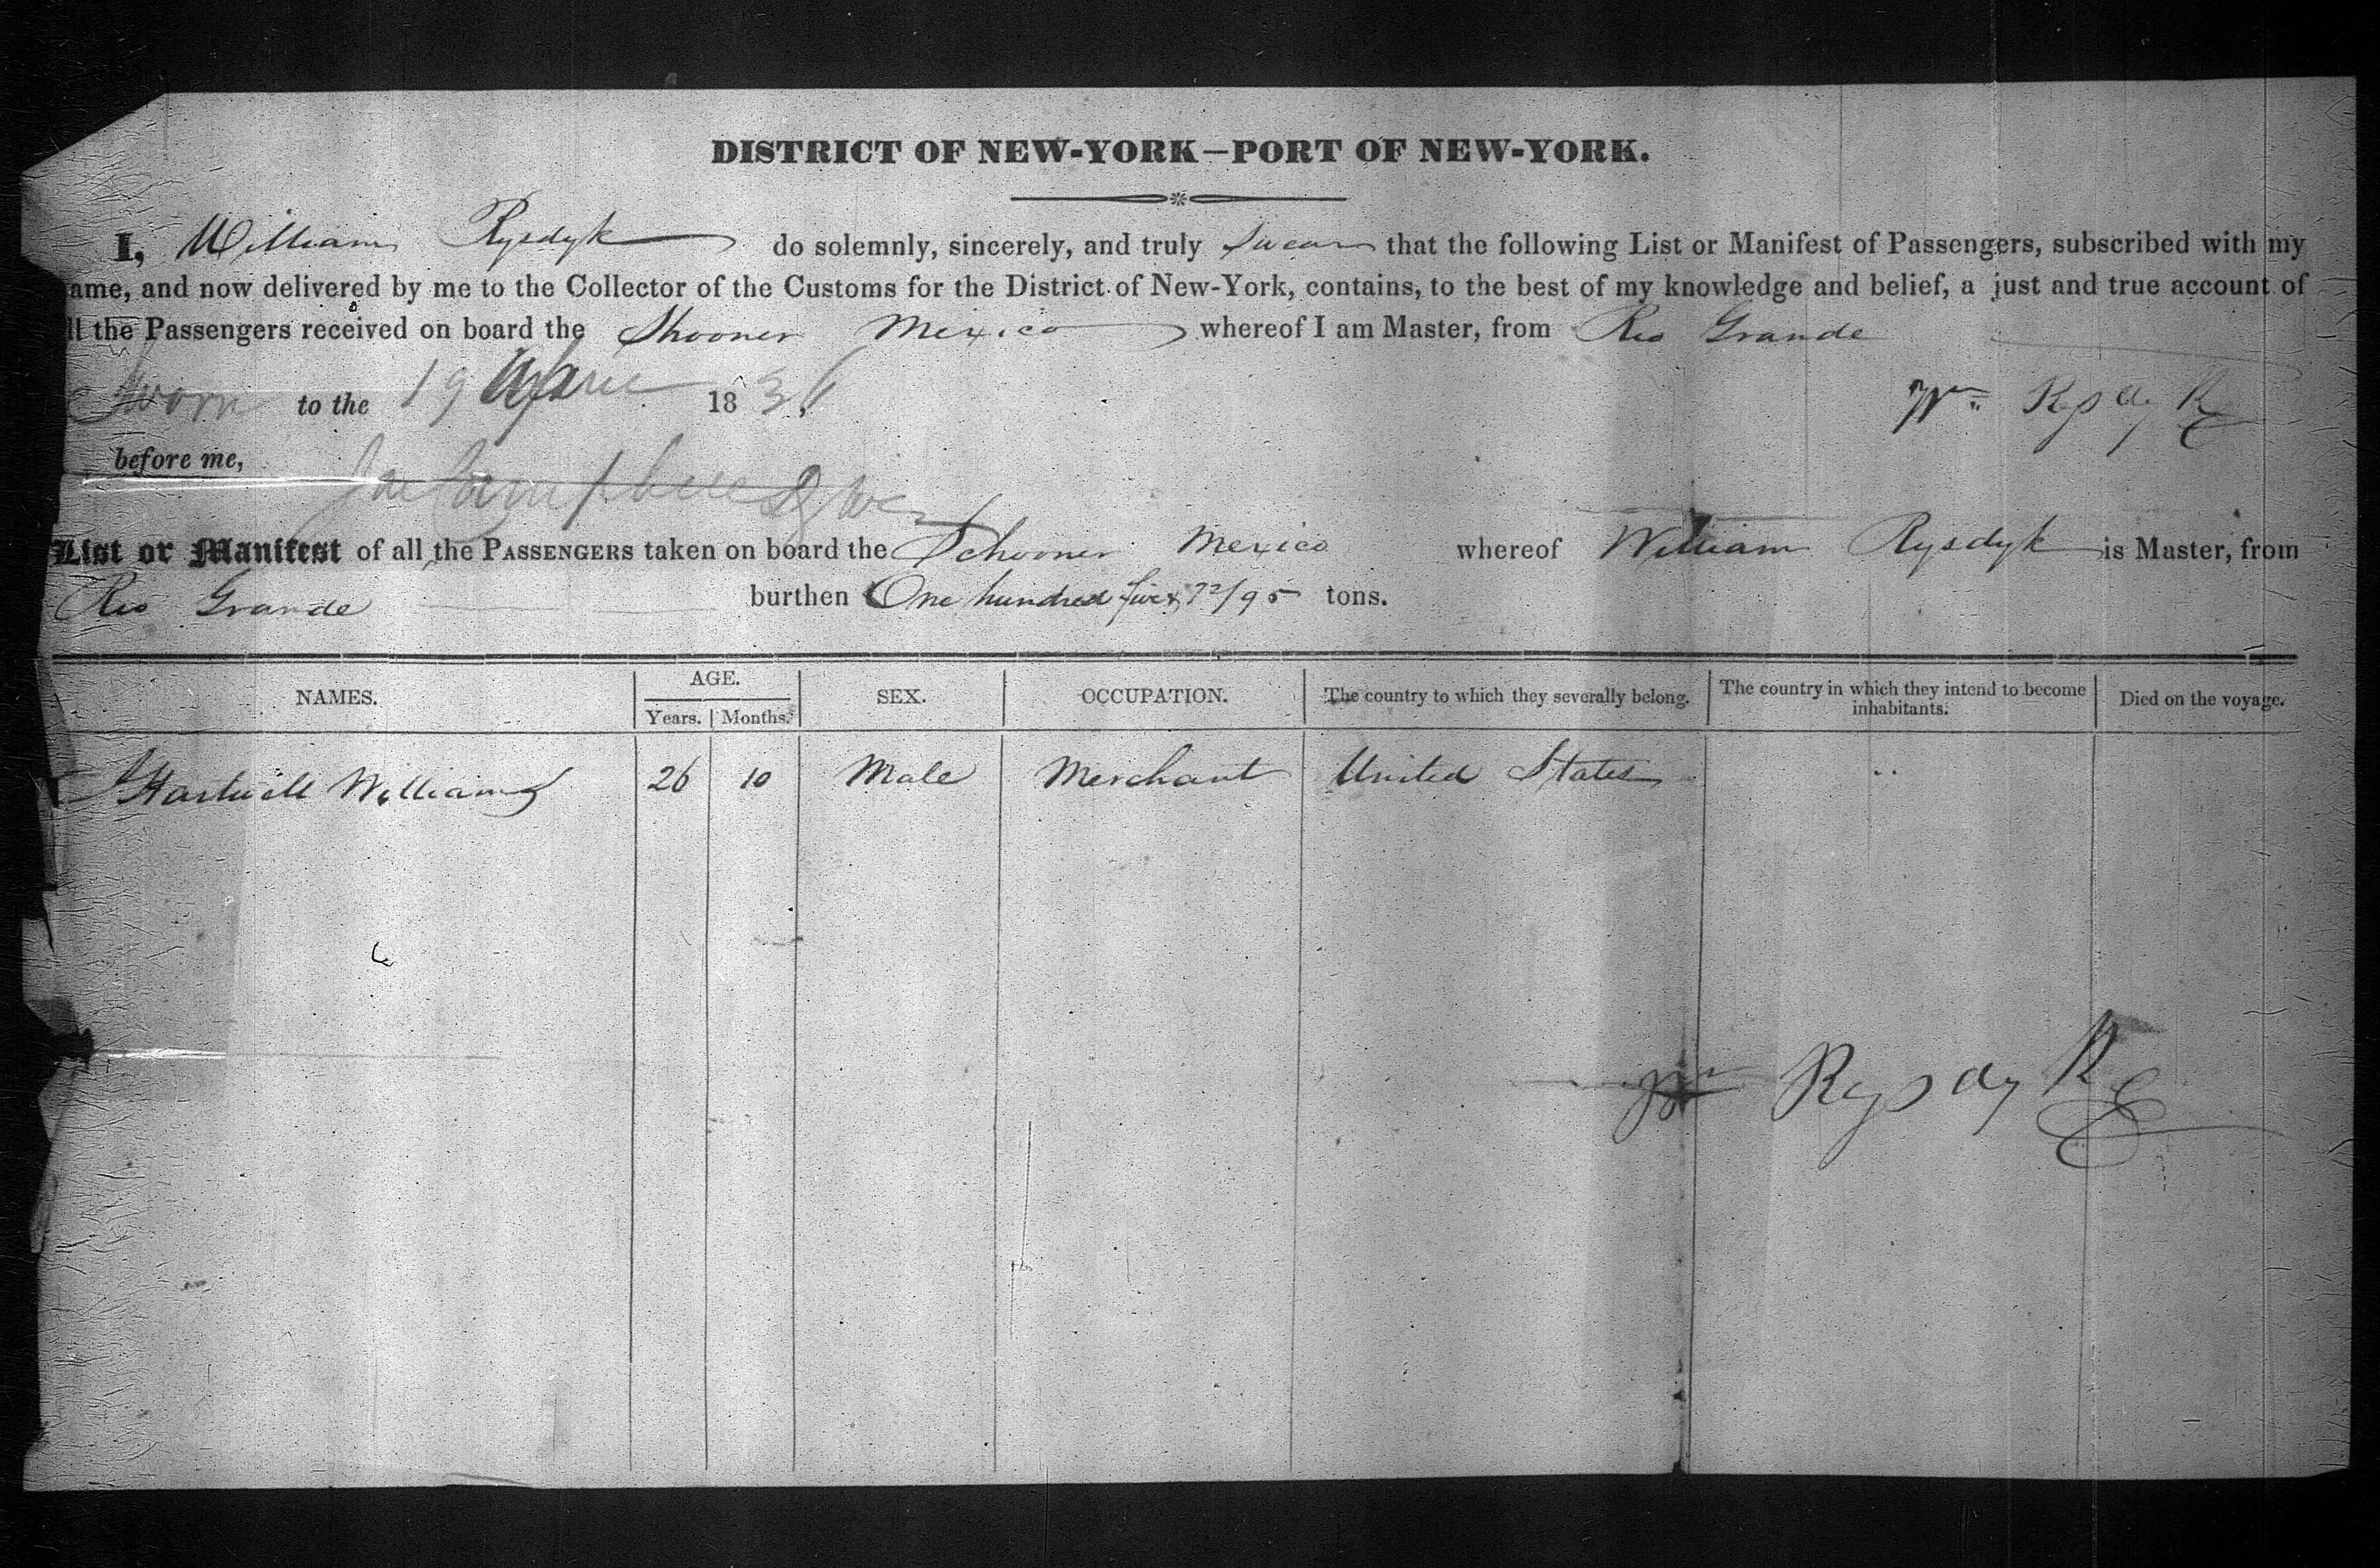 DISTRICT OF NEW-YORK—PORT OF NEW-YORK.
I, William Rysdyk do solemnly, sincerely, and truly Swear that the following List or Manifest of Passengers, subscribed with my
ame, and now delivered by me to the Collector of the Customs for the District of New-York, contains, to the best of my knowledge and belief, a just and true account of
ll the Passengers received on board the Shooner Mexico whereof I am Master, from Rio Grande
Sworn to the 19 1836
Wm Rysdyk
before me,
List or Manifest of all the PASSENGERS taken on board the Schooner Mexico whereof William Rysdyk is Master, from
Rio Grande burthen One hundred five & 72/95 tons.
NAMES. AGE. SEX. OCCUPATION. The country to which they severally belong. The country in which they intend to become inhabitants. Died on the voyage.
Years. Months.
Hartwell Williams 26 10 Male Merchant United States
Wm Rysdyk